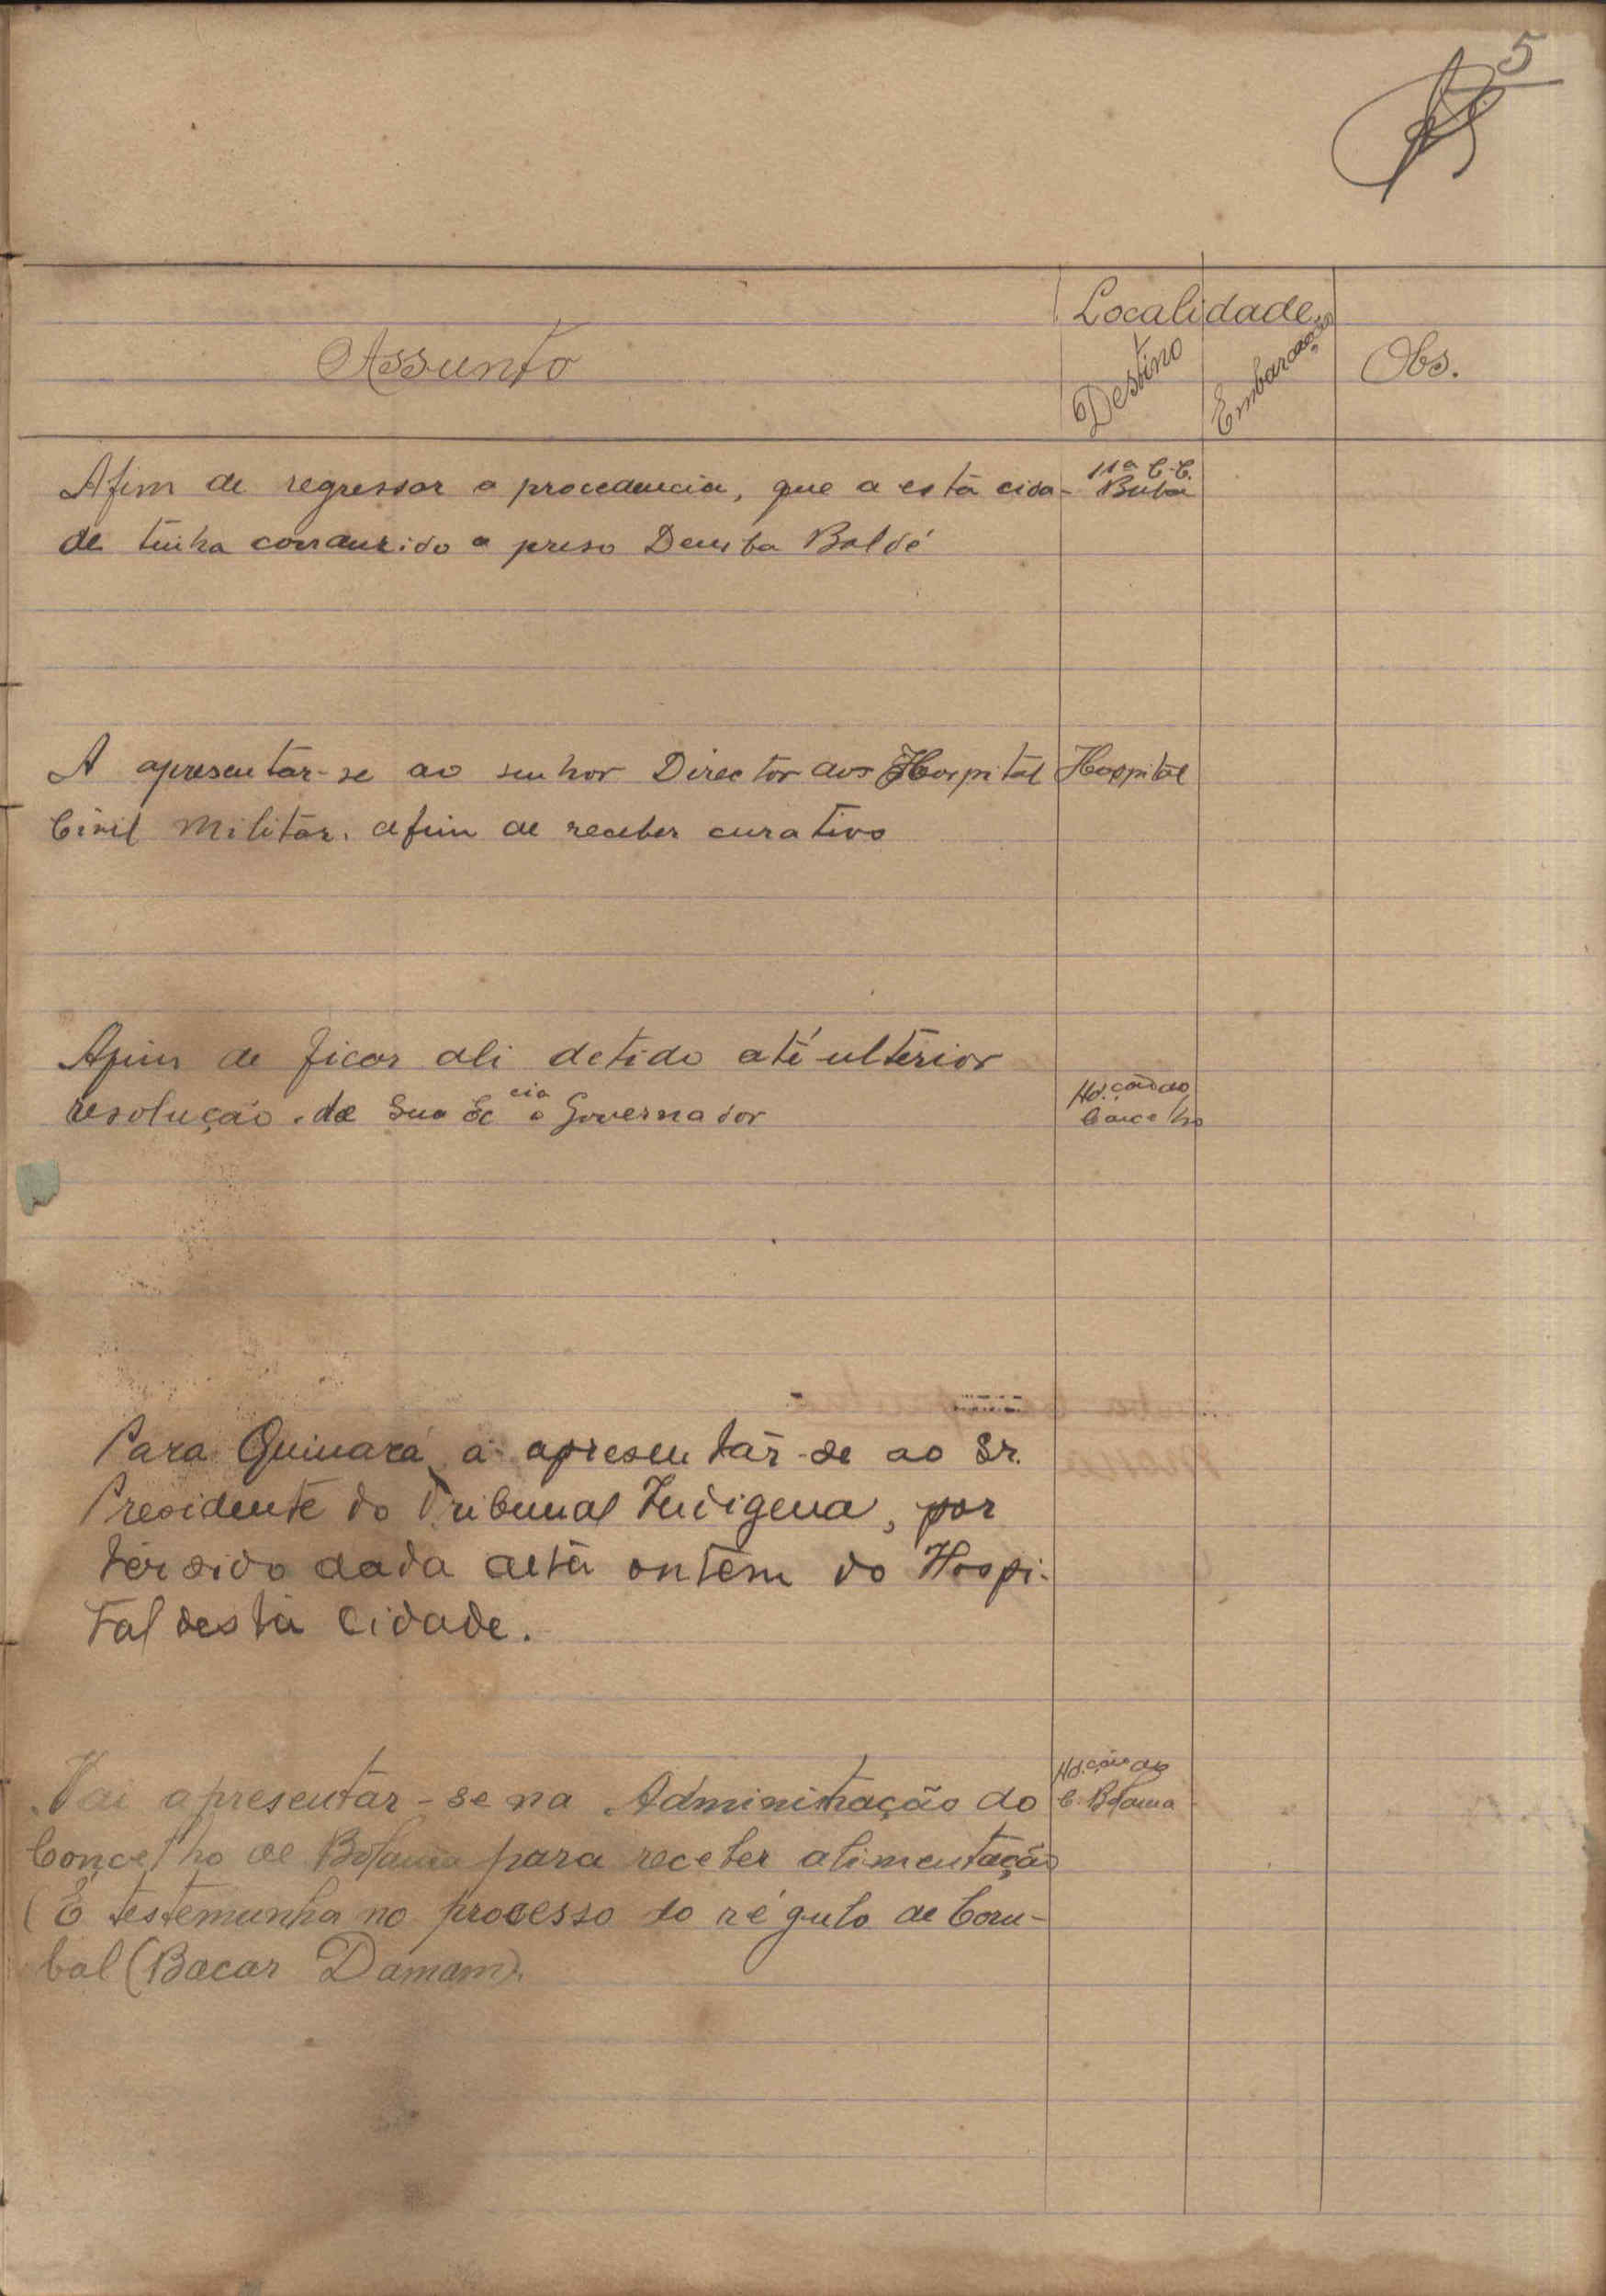 5
Localidade
Assunto
Destino
Embarcação
Obs.
Afim de regressar a procedencia, que a esta cida-
11ª C.C.
Buba
de tinha conduzido o preso Demba Baldé
A apresentar-se ao senhor Director dos Hospital
Hospital
Civil Militar. afim de receber curativo
Afim de ficar ali detido até ulterior
resolução de Sua Ex cia o Governador
Ad.ção do
Concelho
Para Quinará a apresentar-se ao Sr.
Presidente do Tribunal Indigena, por
ter sido dada alta ontem do Hospi-
tal desta cidade.
Vai apresentar-se na Administração do
Ad.ção do
C. Bolama
Concelho de Bolama para receber alimentação
(É testemunha no processo do régulo de Coru-
bal (Bacar Damam).